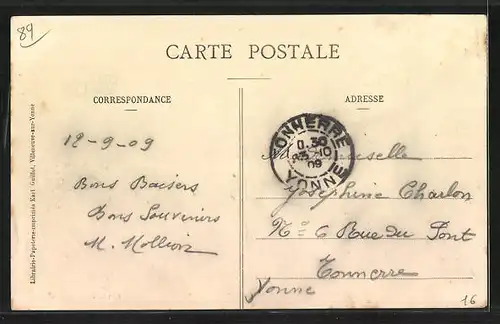 89
CARTE POSTALE
CORRESPONDANCE
ADRESSE
Librairie-Papeterie-imprimée Karl Guillot, Villeneuve-sur-Yonne
12-9-09
Bons Baisers
Bons Souvenirs
M. Mollion
TONNERRE
YONNE
09
Mademoiselle
Joséphine Charlon
N° 6 Rue du Pont
Tonnerre
Yonne
16